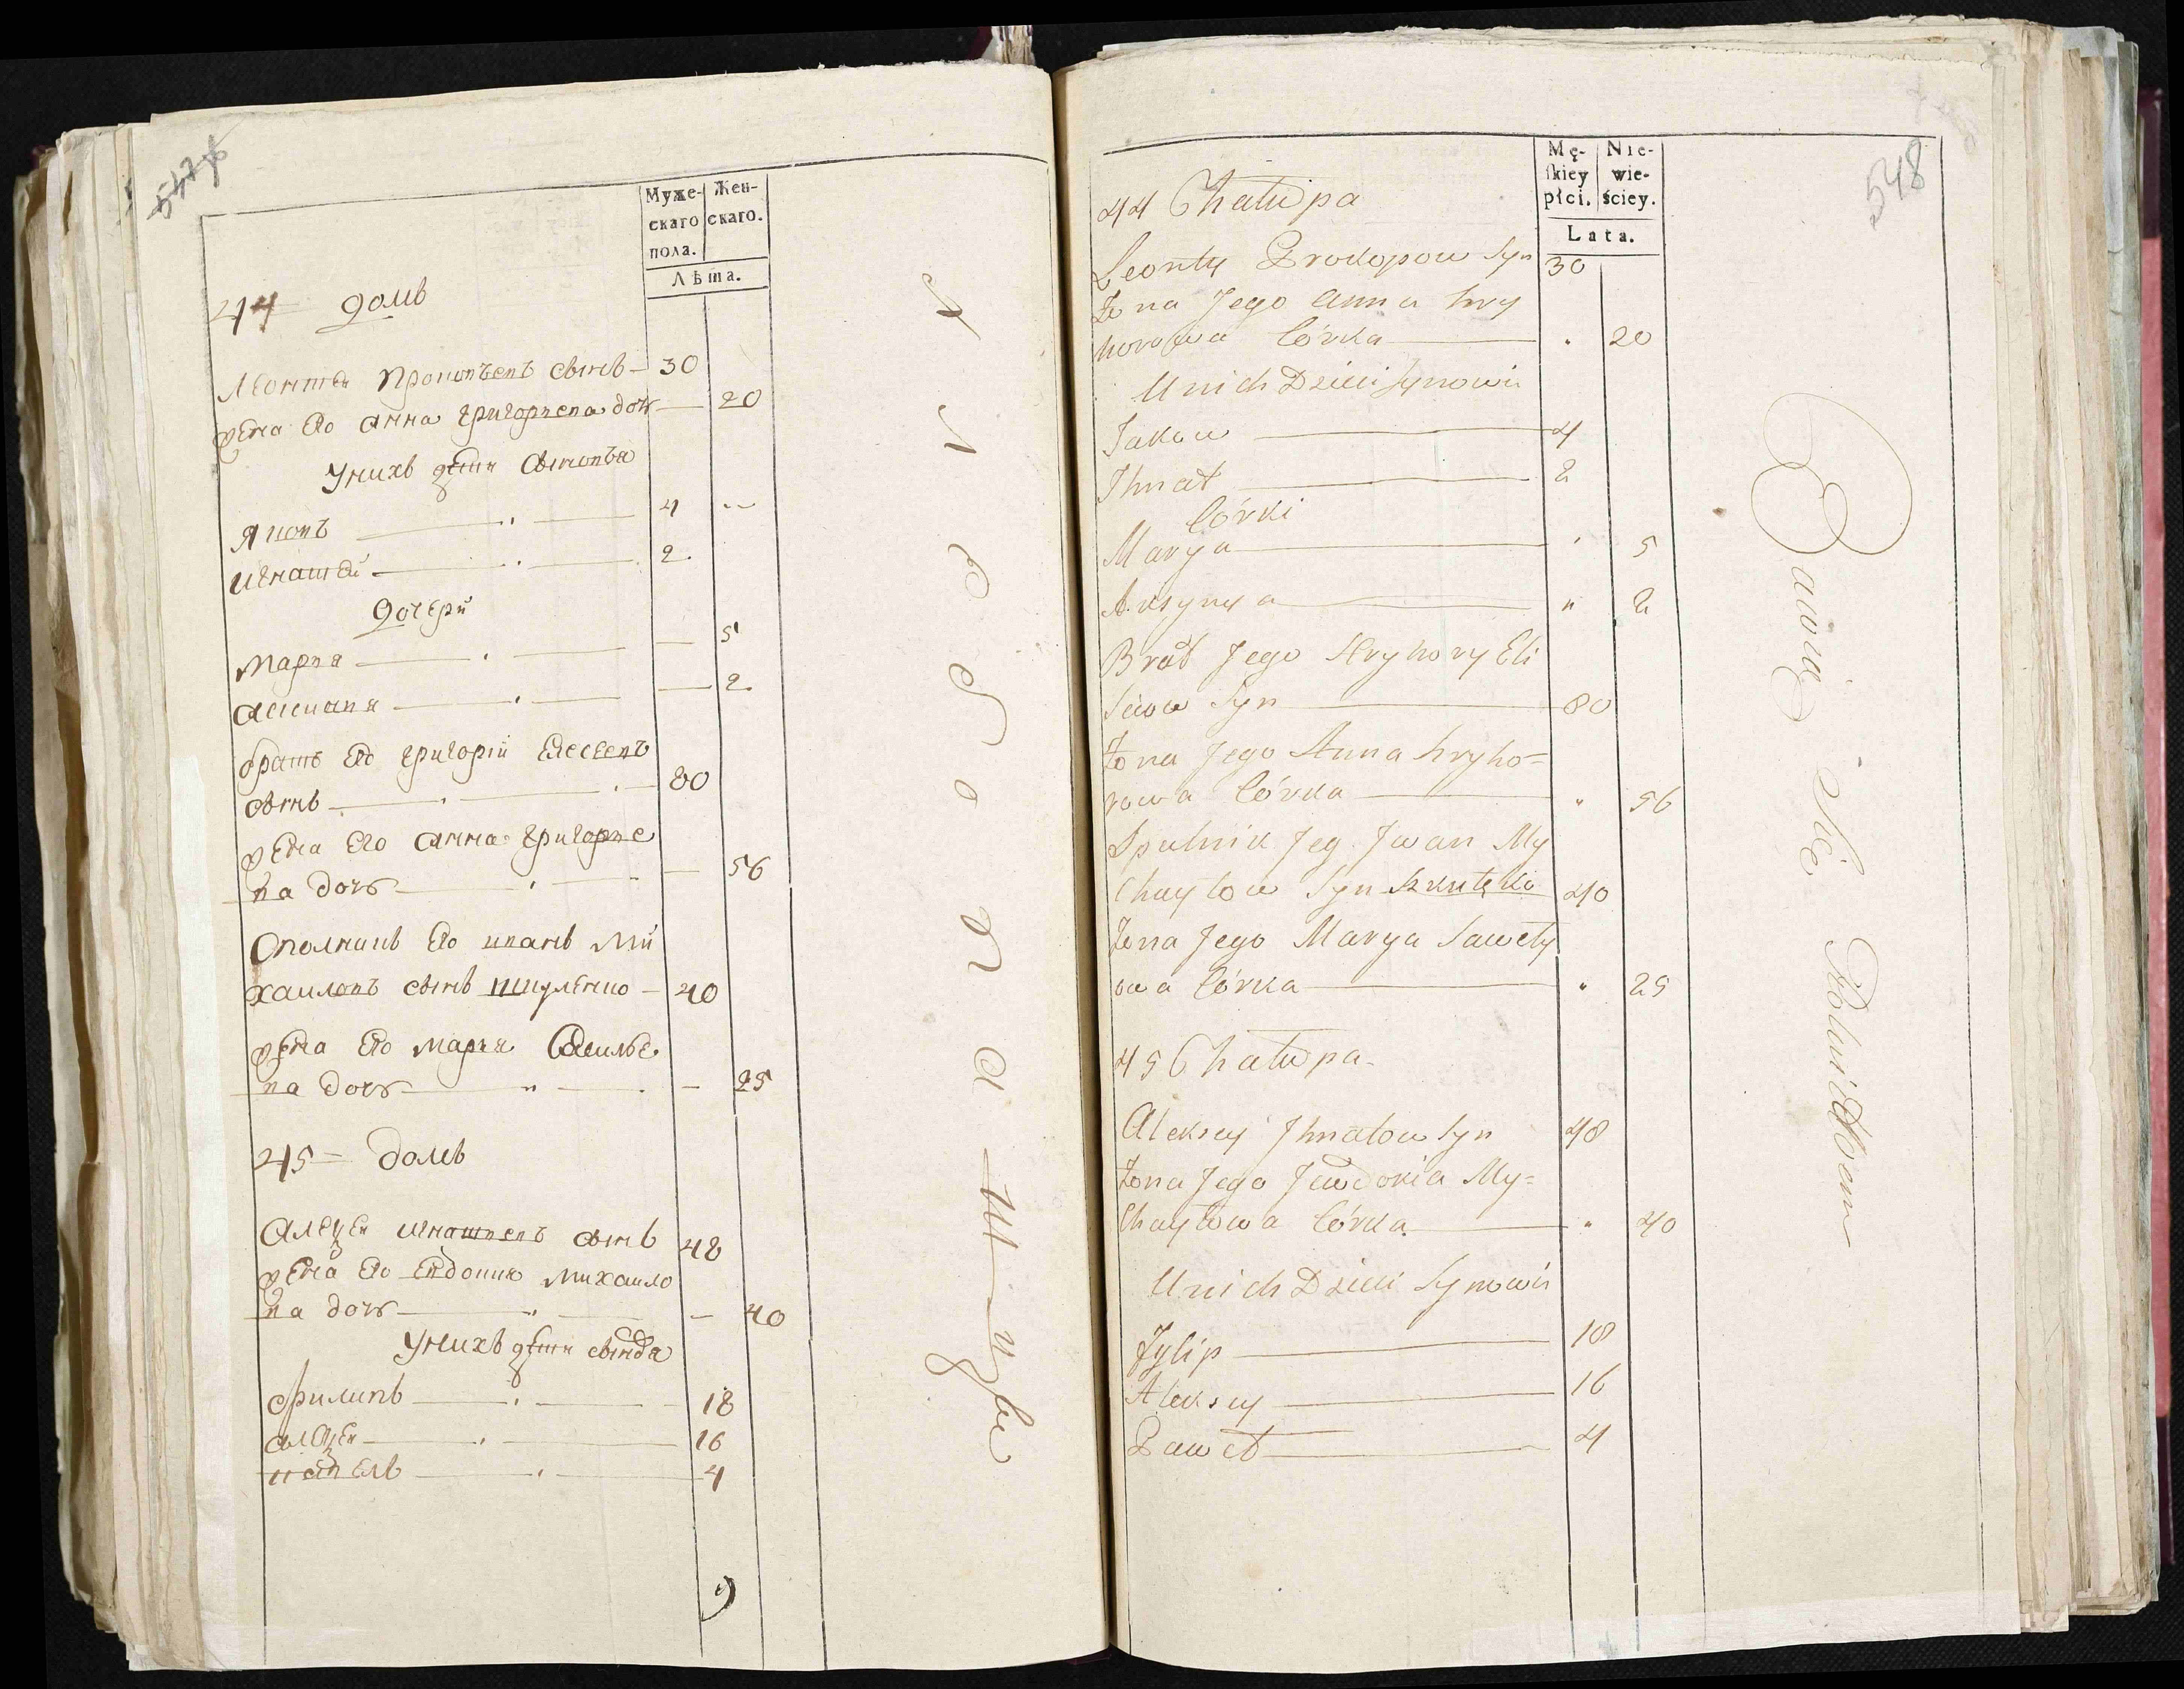 547
Муже-
скаго
пола.
Жен-
скаго.
Лѣта.
44 домъ
Леонтеи Прокопъевъ сынъ — 30
жена его анна григориева дочь — 20
У нихъ дѣти сыновья
Яковъ — 4
игнатей — 2
дочери
Мария — 5
аксиния — 2
братъ его григорій Елесеевъ
сынъ — 80
жена его анна григорие
ва дочь — 56
Сполникъ его иванъ Ми
хаиловъ сынъ — 40
жена его мария Савелье
ва дочь — 25
45 — домъ
Алексеи игнатиевъ сынъ 48
жена его Евдокия михаило
ва дочь — 40
У нихъ дѣти
Филипъ — 18
алексеи — 16
павелъ — 4
9
548
Mę-
skiey
płci.
Nie-
wie-
ściey.
Lata.
44 Chałupa
Leonty Prokopow Syn 30
Żona Jego Anna hry
horowa Córka — 20
U nich Dzieci Synowie
Jakow — 4
Ihnat — 2
Córki
Marya — 5
Aksynya — 2
Brat Jego Hryhory Eli
siew Syn — 80
Żona Jego Anna hryho=
rowa Córka — 56
Spulnik Jeg. Iwan My
chayłow Syn 40
Żona Jego Marya Sawely
owa Córka — 25
45 Chałupa
Alexsey Ihnatow Syn 48
Żona Jego Jewdokia My=
chayłowa Córka — 40
U nich Dzieci Synowie
Fylip — 18
Aleksey — 16
Paweł — 4
Bawią Się Rolnictwem